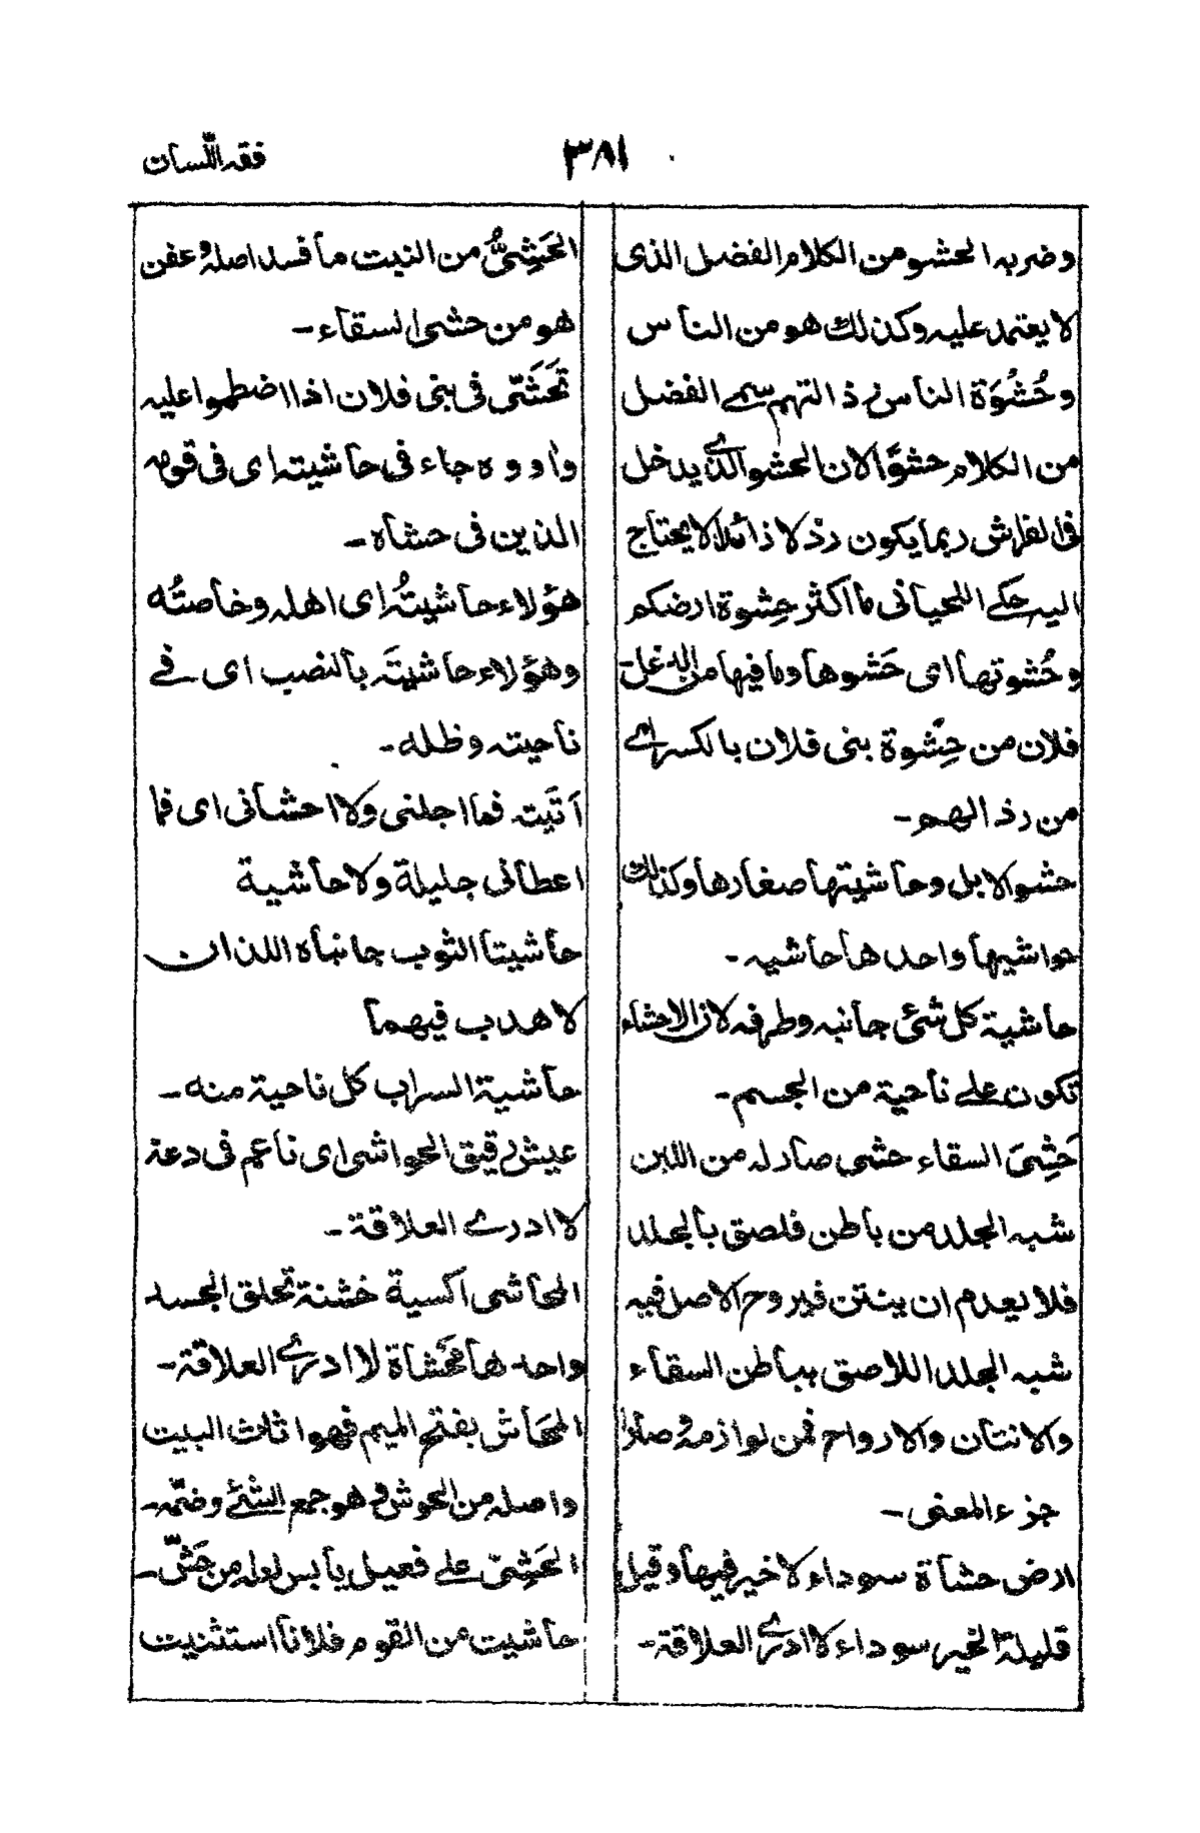 فقه اللسان
٣٨١
وضربه الحشو من الكلام الفضل الذى
لا يعتمد عليه وكذلك هو من الناس
وحُشْوَة الناس رذالتهم سمے الفضل
من الكلام حشوًا لان الحشو الذے يدخل
فى الفراش ربما يكون رذلا ذائلا لا يحتاج
اليه حكے اللحيانى ما اكثر حِشوة ارضكم
وحُشوتها اى حَشوها وما فيها من الدغل
فلان من حِشوة بنى فلان بالكسر اے
من رذالهم ـ
حشو الابل وحاشيتها صغارها وكذلك
حواشيها واحدها حاشيه ـ
حاشية كل شئ جانبه وطرفه لان الاحشاء
تكون علے ناحية من الجسم ـ
حَشِىَ السقاء حشى صار له من اللبن
شبه الجلد من باطن فلصق بالجلد
فلا يعدم ان ينتن فيروح الاصل فيه
شبه الجلد اللاصق بباطن السقاء
والانتان والارواح فمن لوازمه وصارا
جزء المعنى ـ
ارض حشاة سوداء لا خير فيها وقيل
قليلة الخير سوداء لا ادرے العلاقة ـ
الحَشِىُّ من النبت ما فسد اصله وعفن
هو من حشى السقاء ـ
تَحَشَّى فى بنى فلان اذا اضطموا عليه
واووه جاء فى حاشيته اى فى قومه
الذين فى حشاه ـ
هؤلاء حاشيتُه اى اهله وخاصتُه
وهؤلاء حاشيتَه بالنصب اى فے
ناحيته وظله ـ
اَتَيته فما اجلنى ولا احشانى اى فما
اعطانى جليلة ولا حاشية
حاشيتا الثوب جانباه اللذان
لا هدب فيهما
حاشية السراب كل ناحية منه ـ
عيش رقيق الحواشى اى ناعم فى دعة
لا ادرے العلاقة ـ
المحاشى اكسية خشنة تحلق الجسد
واحدها مِحْشاة لا ادرے العلاقة ـ
المَحَاش بفتح الميم فهو اثاث البيت
واصله من الحوش و هو جمع الشئے وضمّه ـ
الحَشِىّ علے فعيل يابس لعله من حَشّ ـ
حاشيت من القوم فلانا استثنيت